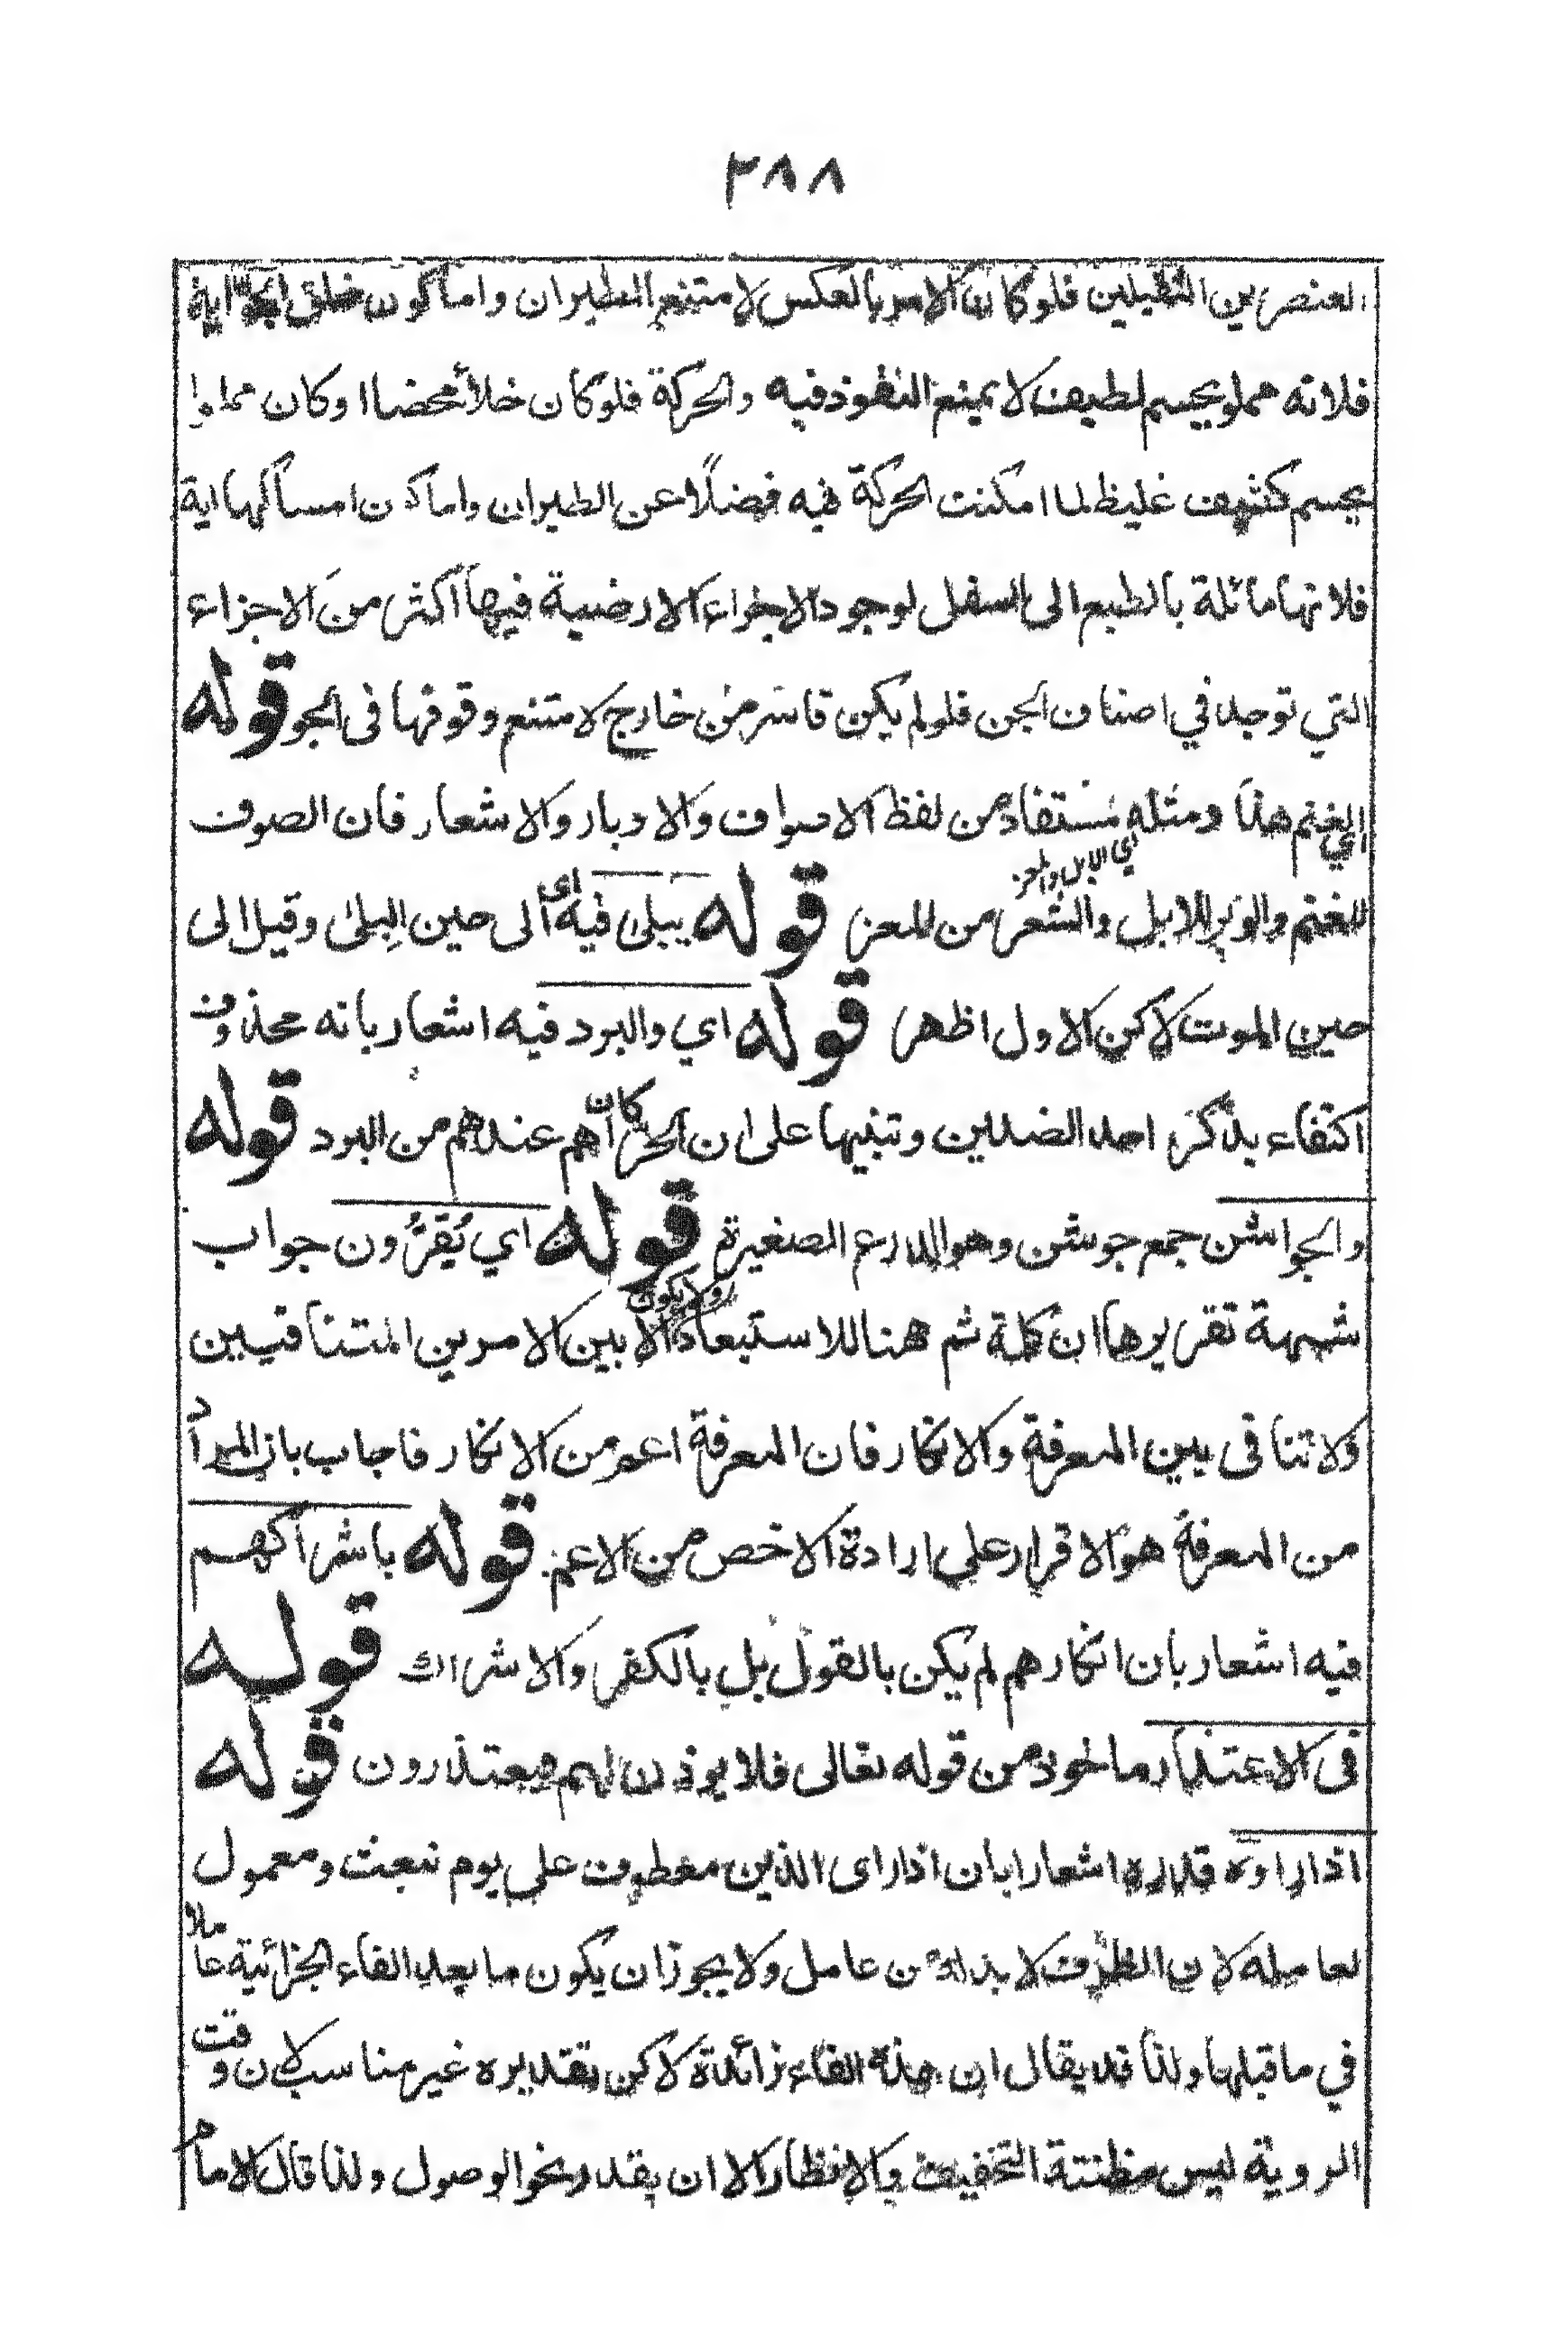 ٣٨٨
العنصرين الثقيلين فلو كان الامر بالعكس لامتنع الطيران واما كون خلق الجو اية
فلانه مملو بجسم لطيف لا يمنع النفوذ فيه والحركة فلو كان خلأ محضا او كان مملوا
بجسم كثيف غليظ لما امكنت الحركة فيه فضلًا عن الطيران واما كون امساكها اية
فلانها مائلة بالطبع الى السفل لوجود الاجزاء الارضية فيها اكثر من الاجزاء
التي توجد في اصناف الجن فلو لم يكن قاسر من خارج لامتنع وقوفها فى الجو قوله
اي الغنم هذا ومثله مستفاد من لفظ الاصواف والاوبار والاشعار فان الصوف
للغنم والوبر للابل والشعر من المعز قوله يبلى فيه اى الى حين البلى وقيل الى
اي الابل والمعز
حين الموت لاكن الاول اظهر قوله اي والبرد فيه اشعار بانه محذوف
اكتفاء بذكر احد الضدين وتنبيها على ان الحر كان اهم عندهم من البرد قوله
والجواشن جمع جوشن وهو الدرع الصغيرة قوله اي يُقرُّون جواب
شبهة تقريرها ان كلمة ثم هنا للاستبعاد ولا يكون الا بين الامرين المتنافيين
ولا تنافى بين المعرفة والانكار فان المعرفة اعم من الانكار فاجاب بان المراد
من المعرفة هو الاقرار علي ارادة الاخص من الاعم قوله باشراكهم
فيه اشعار بان انكارهم لم يكن بالقول بل بالكفر والاشراك قوله
فى الاعتذار ماخوذ من قوله تعالى فلا يوذن لهم فيعتذرون قوله
اذا راوه قدره اشعارا بان اذا راى الذين معطوف علي يوم نبعث ومعمول
لعامله لان الظرف لا بد له من عامل ولا يجوز ان يكون ما بعد الفاء الجزائية عاملا
في ما قبلها ولذا قد يقال ان هذه الفاء زائدة لاكن تقديره غير مناسب لان وقت
الروية ليس مظنتة التخفيف والانظار الا ان يقدر نحو الوصول ولذا قال الامام